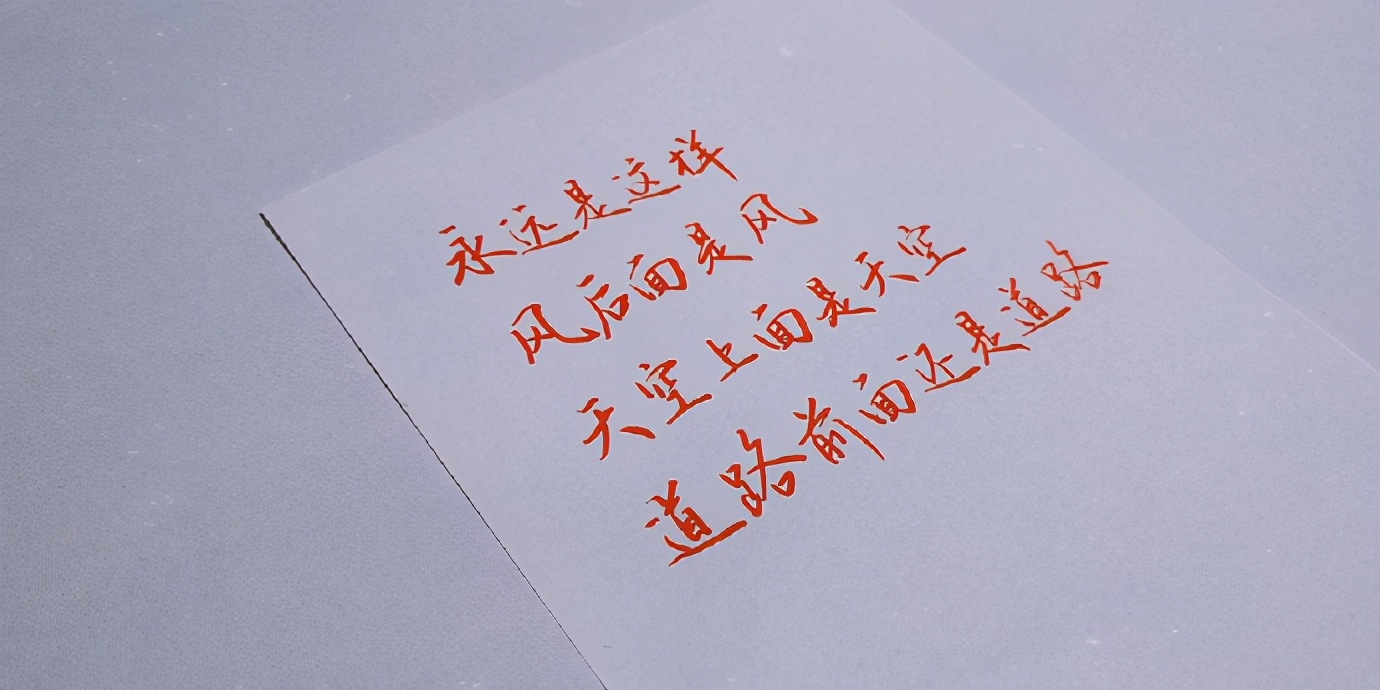 永远是这样
风后面是风
天空上面是天空
道路前面还是道路